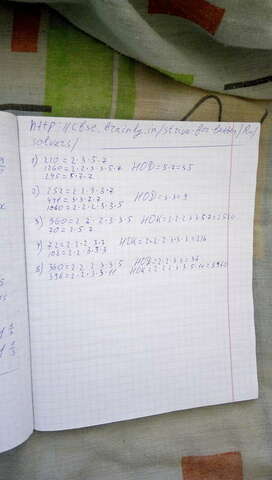 http://cbse.brainly.in/strive-for-better/Ru/
solvers/
1) 210 = 2·3·5·7
1260 = 2·2·3·3·5·7 НОД = 5·7 = 35
245 = 5·7·7
2) 252 = 2·2·3·3·7
441 = 3·3·7·7 НОД = 3·3 = 9
1080 = 2·2·2·3·3·5
3) 360 = 2·2·2·3·3·5 НОК = 2·2·2·3·3·5·7 = 2520
70 = 2·5·7
4) 72 = 2·2·2·3·3 НОК = 2·2·2·3·3·3 = 216
108 = 2·2·3·3·3
5) 360 = 2·2·2·3·3·5 НОД = 2·2·3·3 = 36
396 = 2·2·3·3·11 НОК = 2·2·2·3·3·5·11 = 3960